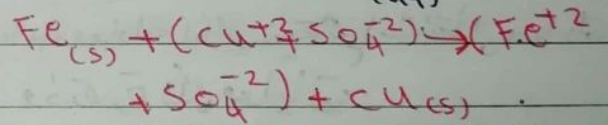 Fe(s) + (Cu+2 + SO4-2) → (Fe+2
+ SO4-2) + Cu(s) .